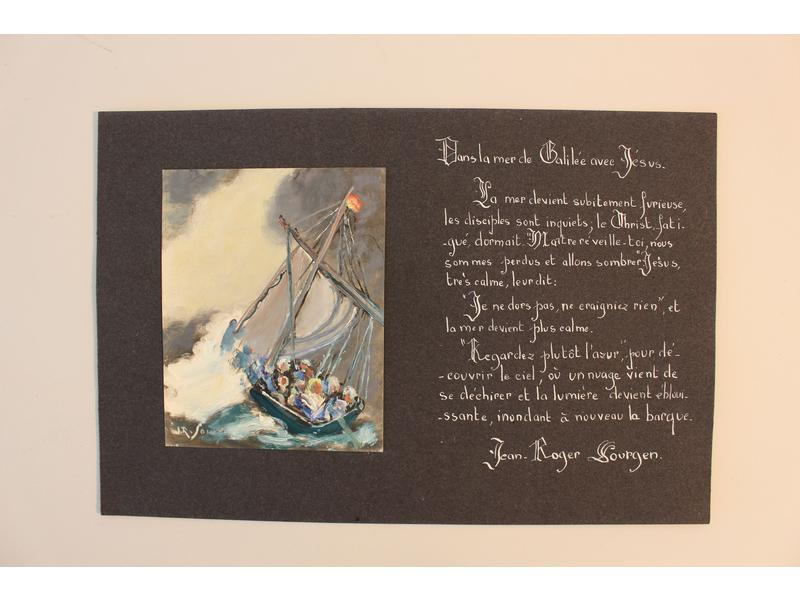 Dans la mer de Galilée avec Jésus.
La mer devient subitement furieuse,
les disciples sont inquiets, le Christ, fati-
-gué, dormait. "Maître réveille-toi, nous
sommes perdus et allons sombrer" Jésus,
très calme, leur dit:
"Je ne dors pas, ne craigniez rien", et
la mer devient plus calme.
"Regardez plutôt l'azur", pour dé-
-couvrir le ciel, où un nuage vient de
se déchirer et la lumière devient ébloui-
-ssante, inondant à nouveau la barque.
Jean-Roger Sourgen.
J.R.